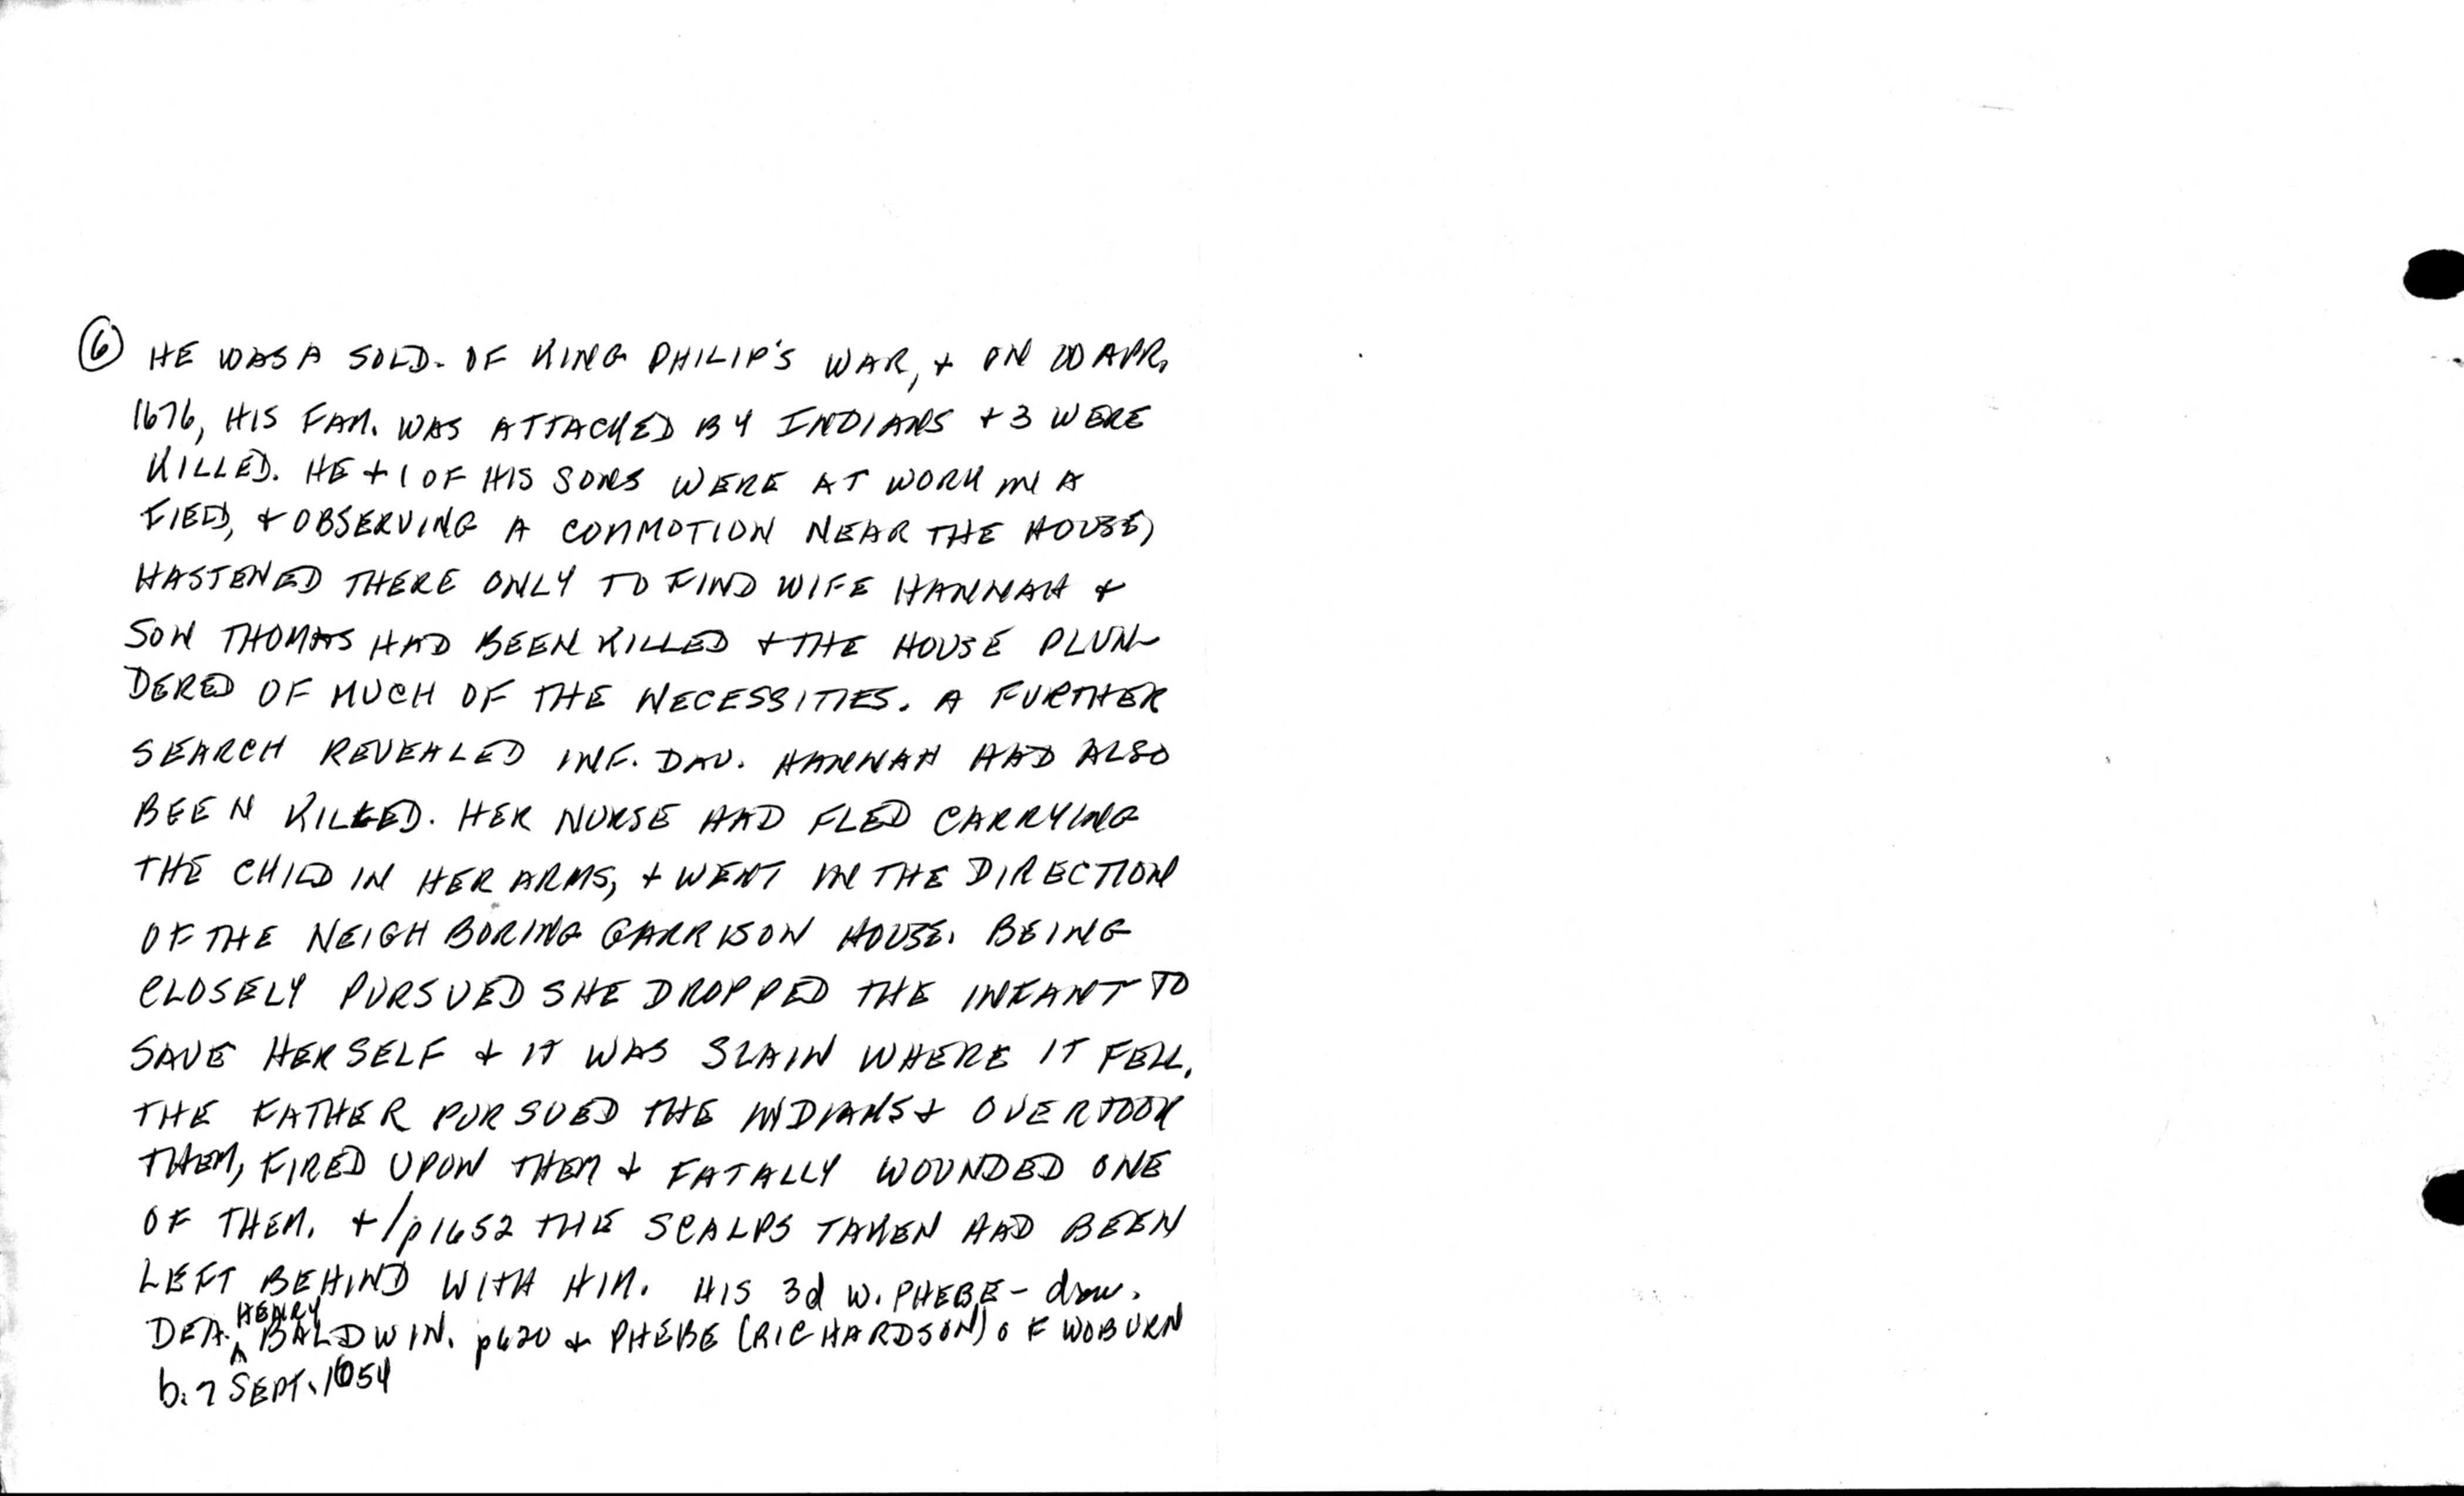 ⑥ HE WAS A SOLD. OF KING PHILIP'S WAR, + ON 20 APR.
1676, HIS FAM. WAS ATTACKED BY INDIANS + 3 WERE
KILLED. HE + 1 OF HIS SONS WERE AT WORK IN A
FIELD, + OBSERVING A COMMOTION NEAR THE HOUSE,
HASTENED THERE ONLY TO FIND WIFE HANNAH +
SON THOMAS HAD BEEN KILLED + THE HOUSE PLUN-
DERED OF MUCH OF THE NECESSITIES. A FURTHER
SEARCH REVEALED INF. DAU. HANNAH HAD ALSO
BEEN KILLED. HER NURSE HAD FLED CARRYING
THE CHILD IN HER ARMS, + WENT IN THE DIRECTION
OF THE NEIGHBORING GARRISON HOUSE. BEING
CLOSELY PURSUED SHE DROPPED THE INFANT TO
SAVE HERSELF + IT WAS SLAIN WHERE IT FELL.
THE FATHER PURSUED THE INDIANS + OVERTOOK
THEM, FIRED UPON THEM + FATALLY WOUNDED ONE
OF THEM. +/p1652 THE SCALPS TAKEN HAD BEEN
LEFT BEHIND WITH HIM. HIS 3d W. PHEBE - dau.
DEA. HENRY BALDWIN. p620 + PHEBE (RICHARDSON) OF WOBURN
b. 7 SEPT. 1654